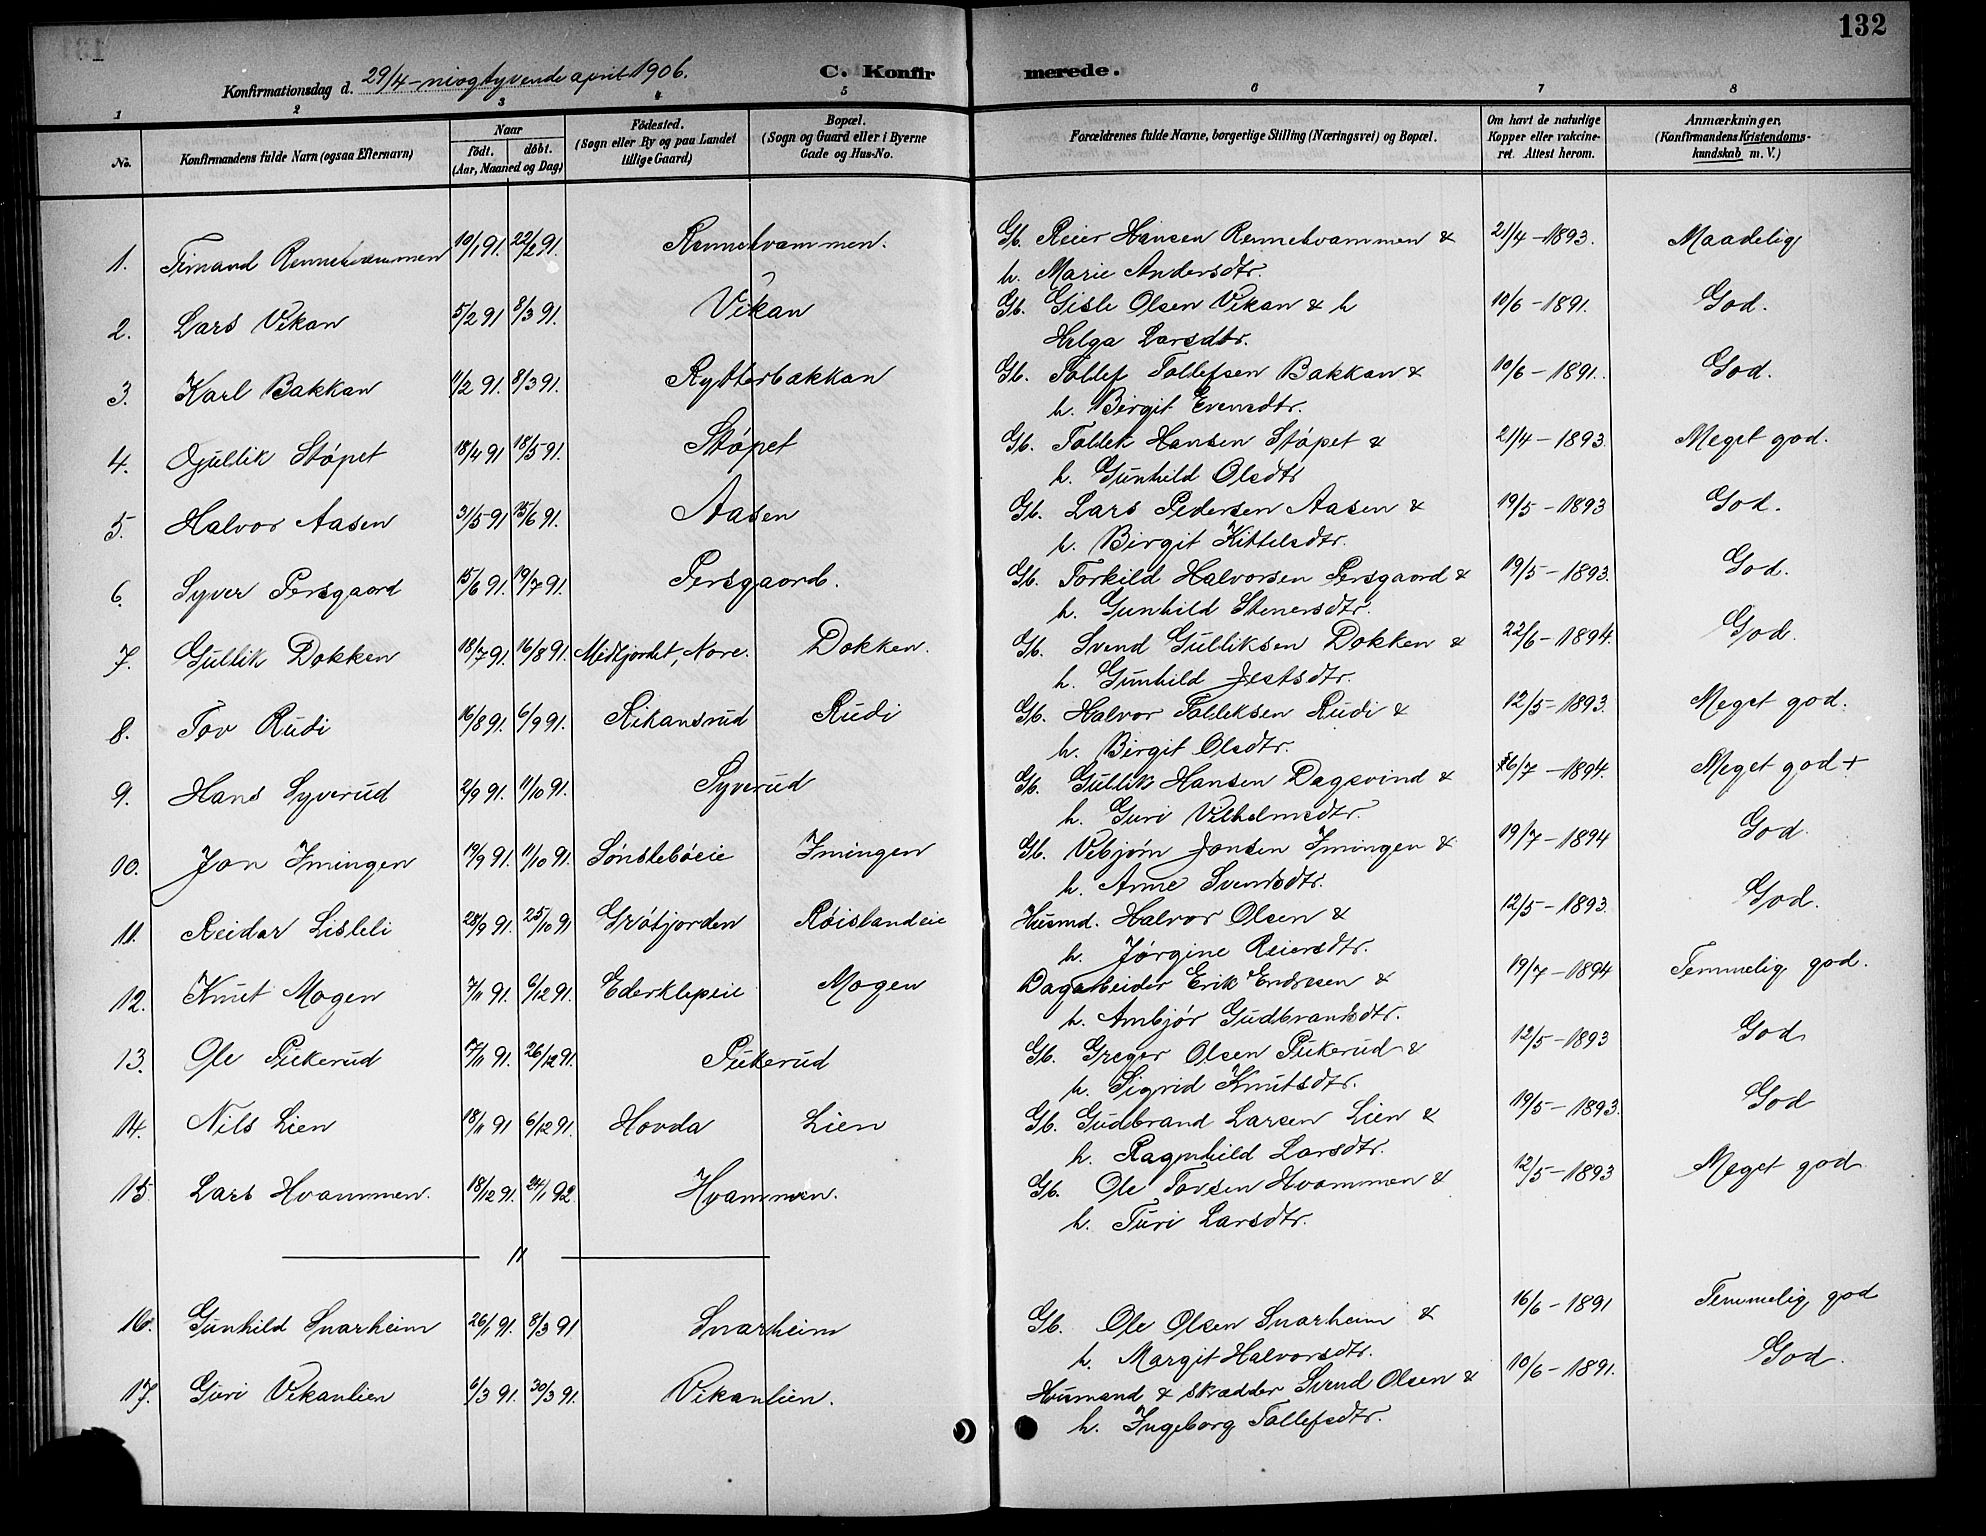 132
Konfirmationsdag d. 29/4 - niogtyvende april 1906.
C. Konfirmerede.
1 2 3 4 5 6 7 8
No.
Konfirmandens fulde Navn (ogsaa Efternavn)
Naar
født. døbt.
(Aar, Maaned og Dag)
Fødested.
(Sogn eller By og paa Landet
tillige Gaard)
Bopæl.
(Sogn og Gaard eller i Byerne
Gade og Hus-No.
Forældrenes fulde Navne, borgerlige Stilling (Næringsvei) og Bopæl.
Om havt de naturlige
Kopper eller vakcine-
ret. Attest herom.
Anmærkninger,
(Konfirmandens Kristendoms-
kundskab m. V.)
1. Timand Rennetvammen 10/1 91. 22/2 91. Rennetvammen. Gb. Reier Hansen Rennetvammen & 21/4 - 1893. Maadelig
h. Marie Andersdtr.
2. Lars Vikan 5/2 91 8/3 91. Vikan Gb. Gisle Olsen Vikan & h 10/6 - 1891. God.
Helga Larsdtr.
3. Karl Bakkan 11/2 91. 8/3 91. Rytterbakkan Gb. Tollef Tollefsen Bakkan & 10/6 - 1891. God.
h. Birgit Evensdtr.
4. Gullik Støpet 18/4 91 18/5 91. Støpet Gb. Tollek Hansen Støpet & 21/4 - 1893. Meget god.
h. Gunhild Olsdtr
5. Halvor Aasen 31/5 91 25/6 91. Aasen Gb. Lars Pedersen Aasen & 19/5 - 1893 God.
h. Birgit Kittelsdtr.
6. Syver Persgaard 15/6 91. 19/7 91. Persgaard. Gb. Torkild Halvorsen Persgaard & 19/5 - 1893. God.
h. Gunhild Stenersdtr.
7. Gullik Dokken 18/7 91. 16/8 91. Midtjordet, Nore. Dokken. Gb. Svend Gulliksen Dokken & 22/6 - 1894. God.
h. Gunhild Jestsdtr.
8. Tov Rudi 16/8 91. 6/9 91. Rikansrud Rudi Gb. Halvor Tolleksen Rudi & 12/5 - 1893. Meget god.
h. Birgit Olsdtr.
9. Hans Syverud 2/9 91. 11/10 91. Syverud Gb. Gullik Hansen Dagsvind & 26/7 - 1894. Meget god +
h. Guri Vilhelmsdtr.
10. Jon Imingen 19/9 91. 11/10 91. Sønslebøeie Imingen Gb. Vebjørn Jonsen Imingen & 19/7 - 1894 God.
h. Anne Svendsdtr.
11. Reidar Lisleli 28/9 91. 25/10 91 Grøtjorden Røislandeie Husmd. Halvor Olsen & 12/5 - 1893. God.
h. Jørgine Reiersdtr.
12. Knut Mogen 7/11 91. 6/12 91. Ederklepeie Mogen Dagarbeider Erik Endresen & 19/7 - 1894 Temmelig god.
h. Ambjør Gudbrandsdtr.
13. Ole Pukerud 7/11 91. 26/12 91. Pukerud Gb. Greger Olsen Pukerud & 12/5 - 1893 God
h. Sigrid Knutsdtr.
14. Nils Lien 18/11 91 6/12 91. Hovda Lien Gb. Gudbrand Larsen Lien & 19/5 - 1893. God
h. Ragnhild Larsdtr.
15 Lars Hvammen. 18/12 91. 24/1 92. Hvammen. Gb. Ole Torsen Hvammen & 12/5 - 1893 Meget god
h. Turi Larsdtr.
16. Gunhild Snarheim 26/1 91. 8/3 91 Snarheim Gb. Ole Olsen Snarheim & 16/6 - 1891 Temmelig god
h. Margit Halvorsdtr.
17. Guri Vikanlien 6/3 91. 30/3 91. Vikanlien. Husmand & skrædder Svend Olsen & 10/6 - 1891. God.
h. Ingeborg Tollefsdtr.